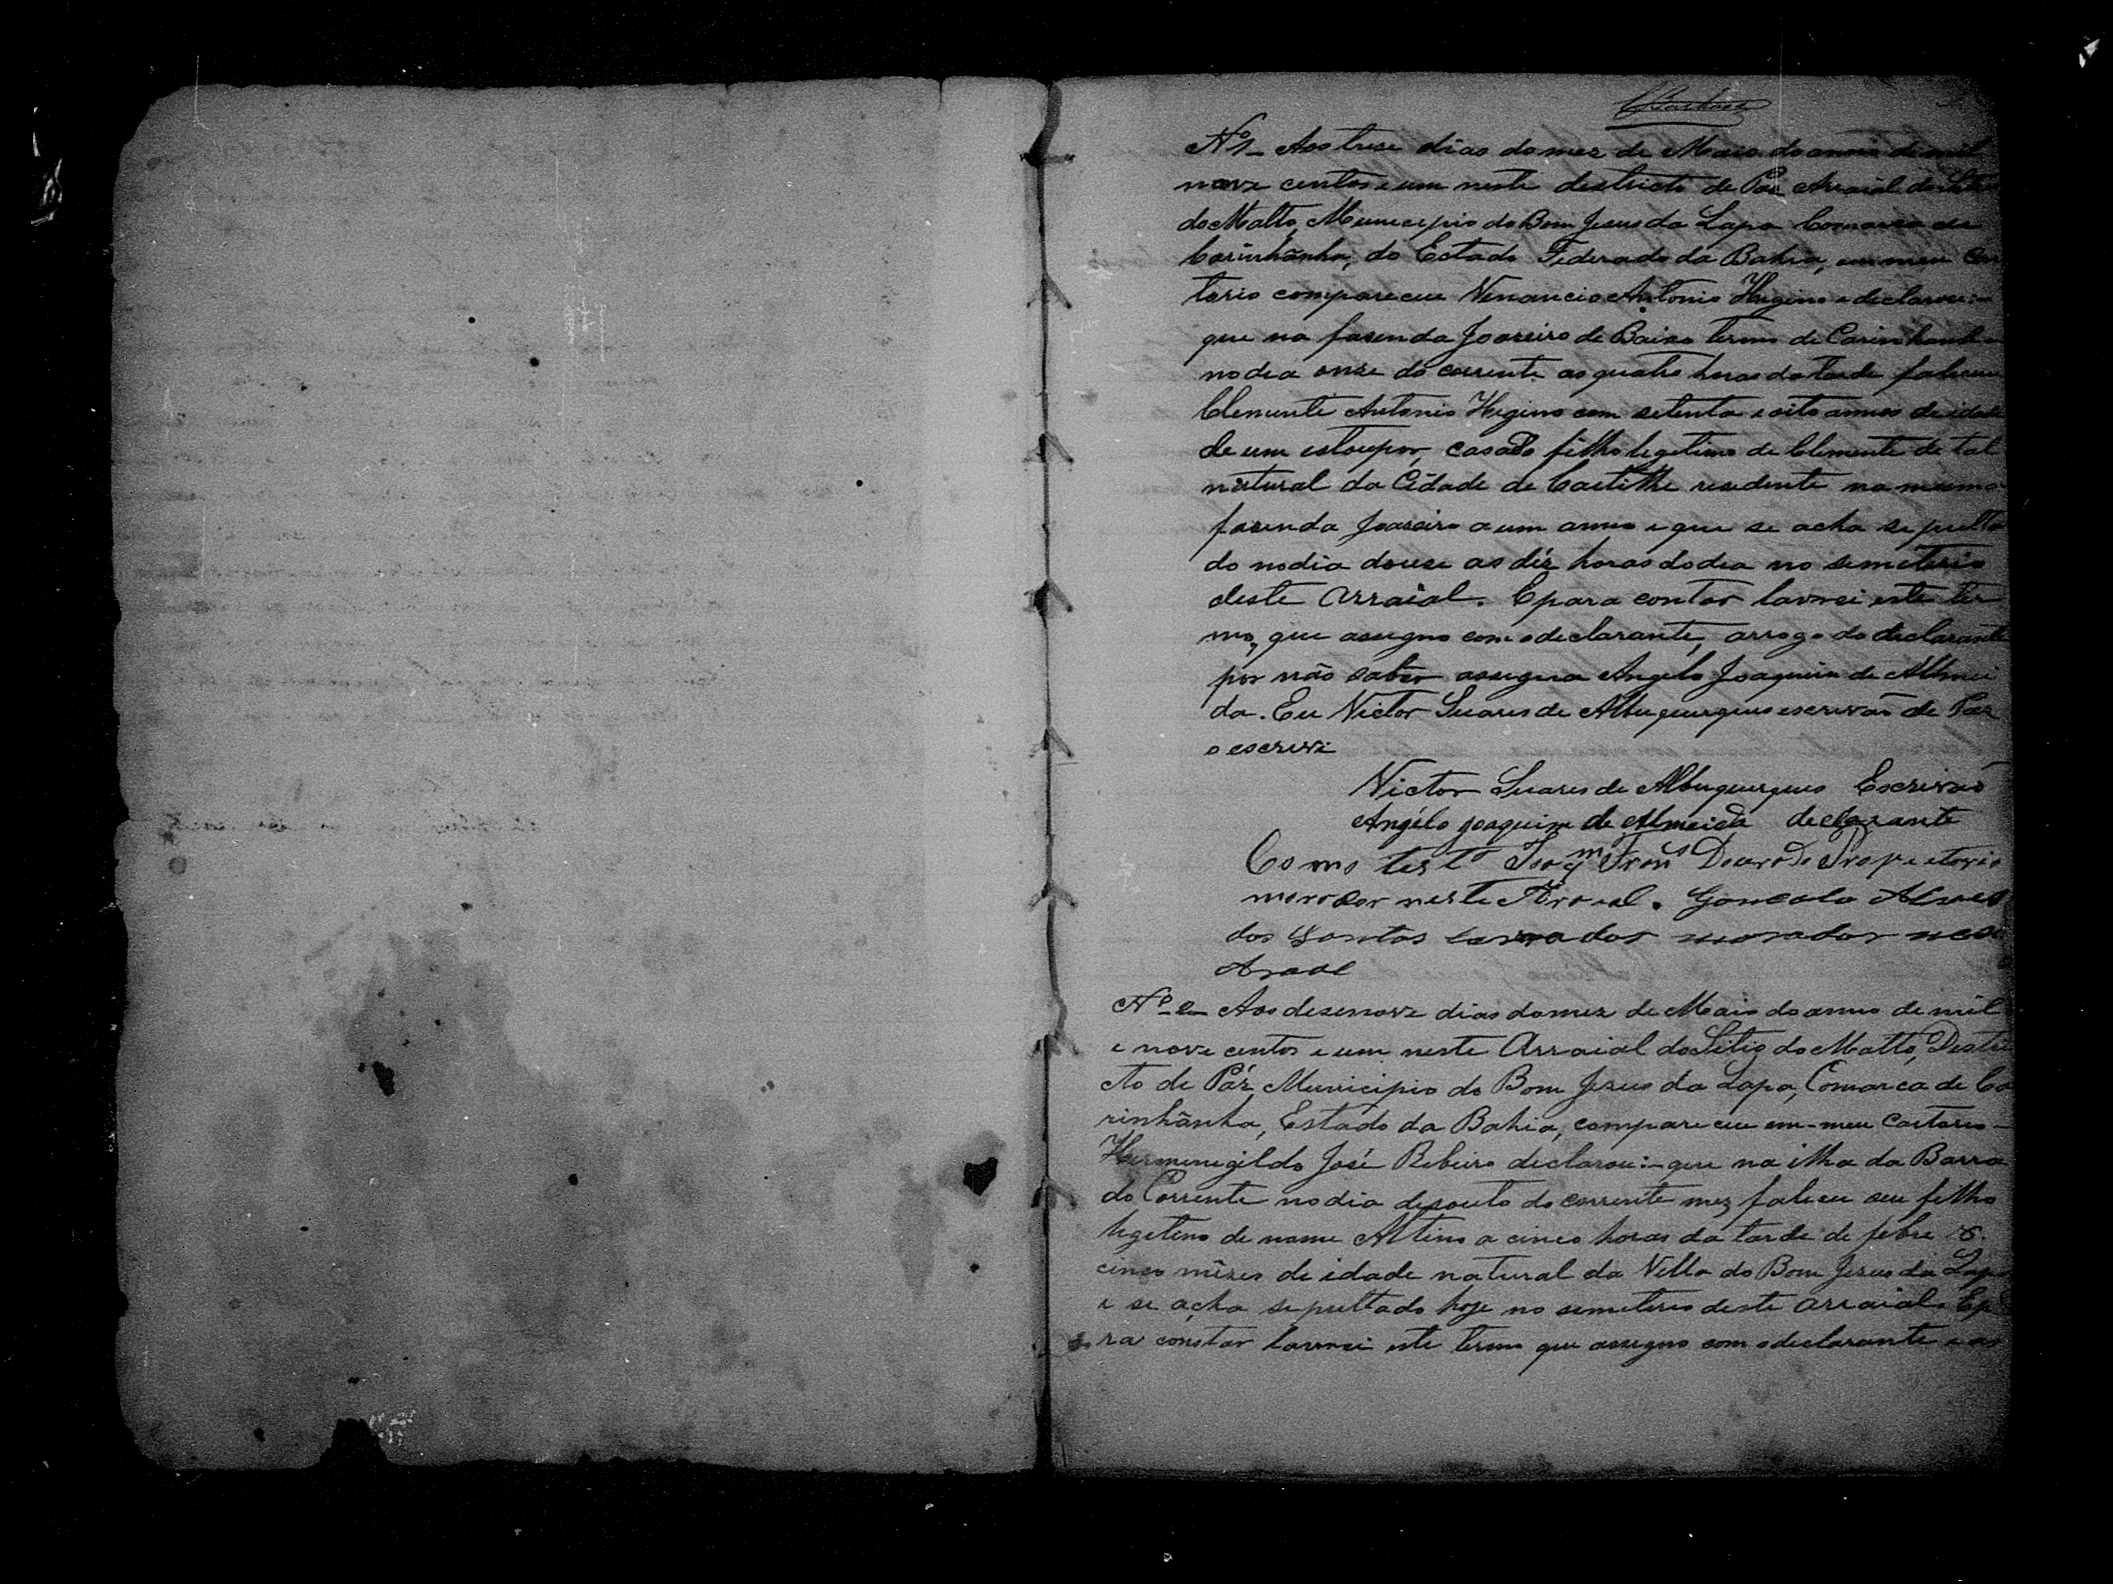 Nº 1– Aos trese dias do mez de Maio do anno de mil
nove centos e um neste destricto de Paz Arraial do Sitio
do Matto, Municipio do Bom Jesus da Lapa Comarca de
Carinhânha, do Estado Federado da Bahia, em meu Car
torio compareceu Venancio Antonio Hugino e declarou:–
que na fasenda Joaseiro de Baixo termo de Carinhanha
no dia onze do corrente as quatro horas da tarde faleceu
Clemente Antonio Hugino com setenta e oito annos de idade
de um estoupor, casado filho legitimo de Clemente de tal
natural da Cidade de Caetithe residente na mesma
fasenda Joaseiro a um anno e que se acha sepulta
do no dia douse as déz horas do dia no semiterio
deste Arraial. E para contar lavrei este ter
mo, que assigno com o declarante, arrogo do declarante
por não saber assigna Angelo Joaquim de Almei
da. Eu Victor Suares de Albuquerques escrivão de Paz
o escrevi
Victor Suares de Albuquerques Escrivão
Angélo Joaquim de Almeida declarante
Como testº Joaqm Franco Dourado Propietario
morador neste Aroial. Goncalo Alves
dos Santos lavrador morador nest
Araal
Nº 2– Aos desenove dias do mez de Maio do anno de mil
e nove centos e um neste Arraial do Sitio do Matto, Destri
cto de Páz Municipio do Bom Jezus da Lapa, Comarca de Ca
rinhãnha, Estado da Bahia, compareceu em meu Cartorio–
Hermenegildo José Ribeiro declarou:– que na ilha da Barra
do Corrente no dia desouto do corrente mez faleceu seu filho
legetimo de nome Altino a cinco horas da tarde de febre
cinco mêzes de idade natural da Villa do Bom Jezus da Lapa
e se acha sepultado hoje no semiterio deste arraial. E pa
ra constar lavrei este termo que assigno com o declarante e as